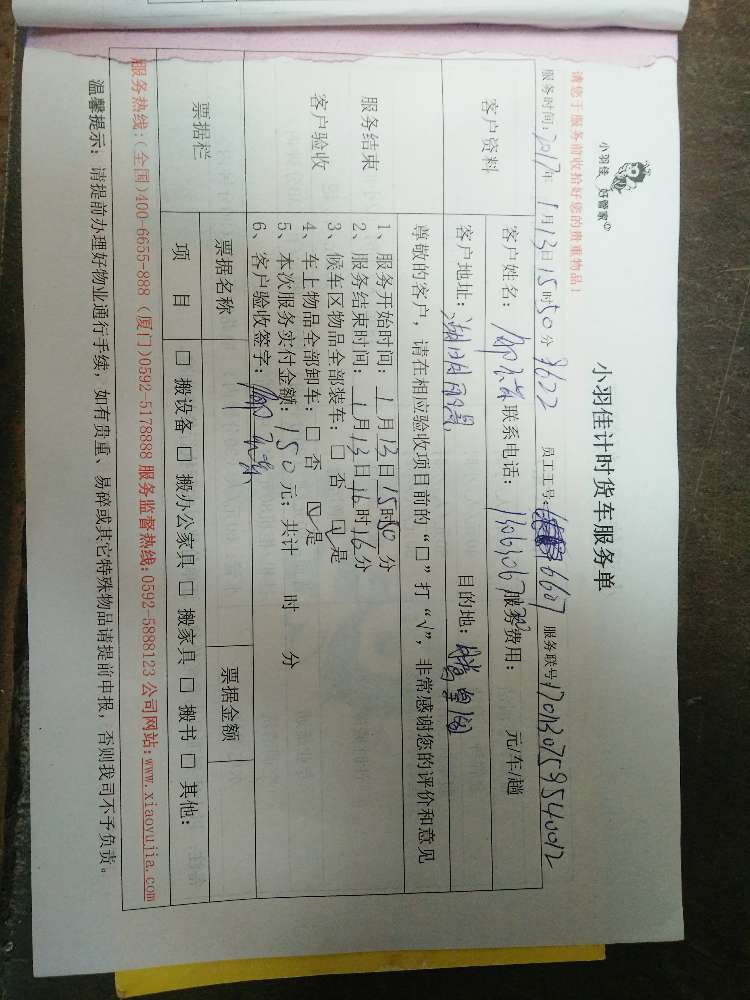 小羽佳 好管家
小羽佳计时货车服务单
请您于服务前收拾好您的贵重物品！
服务时间：2017年 1月13日15时50分 员工工号： 6607 服务联号：
客户资料
客户姓名： 联系电话： 服务费用： 元/车/趟
客户地址： 目的地：
尊敬的客户，请在相应验收项目前的“□”打“√”，非常感谢您的评价和意见
服务结束
客户验收
1、服务开始时间： 1月13日15时50分
2、服务结束时间： 1月13日16时16分
3、候车区物品全部装车：□ 否 ☑ 是
4、车上物品全部卸车：□ 否 ☑ 是
5、本次服务实付金额：150元；共计 时 分
6、客户验收签字：
票据栏
票据名称 票据金额
项 目 □ 搬设备 □ 搬办公家具 □ 搬家具 □ 搬书 □ 其他：
服务热线：(全国)400-6655-888 (厦门)0592-5178888 服务监督热线：0592-5888123 公司网站：www.xiaoyujia.com
温馨提示：请提前办理好物业通行手续，如有贵重、易碎或其它特殊物品请提前申报，否则我司不予负责。